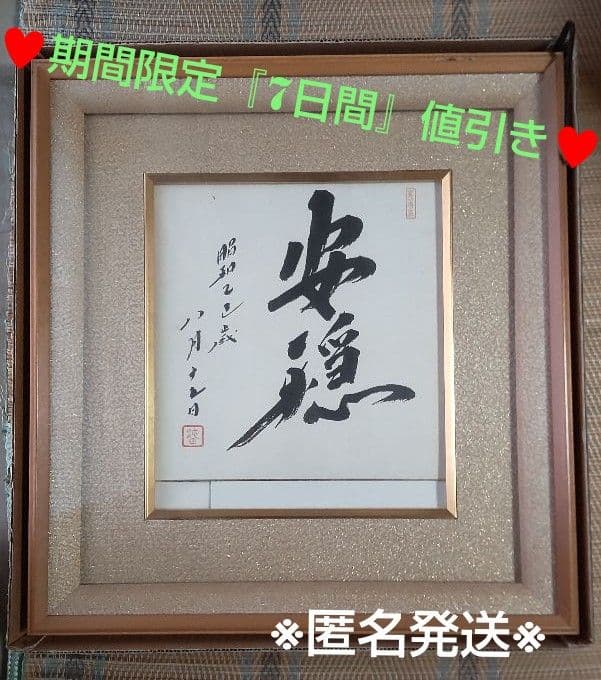 ♥期間限定『7日間』値引き♥
安穏
昭和乙丑歳
八月十五日
※匿名発送※